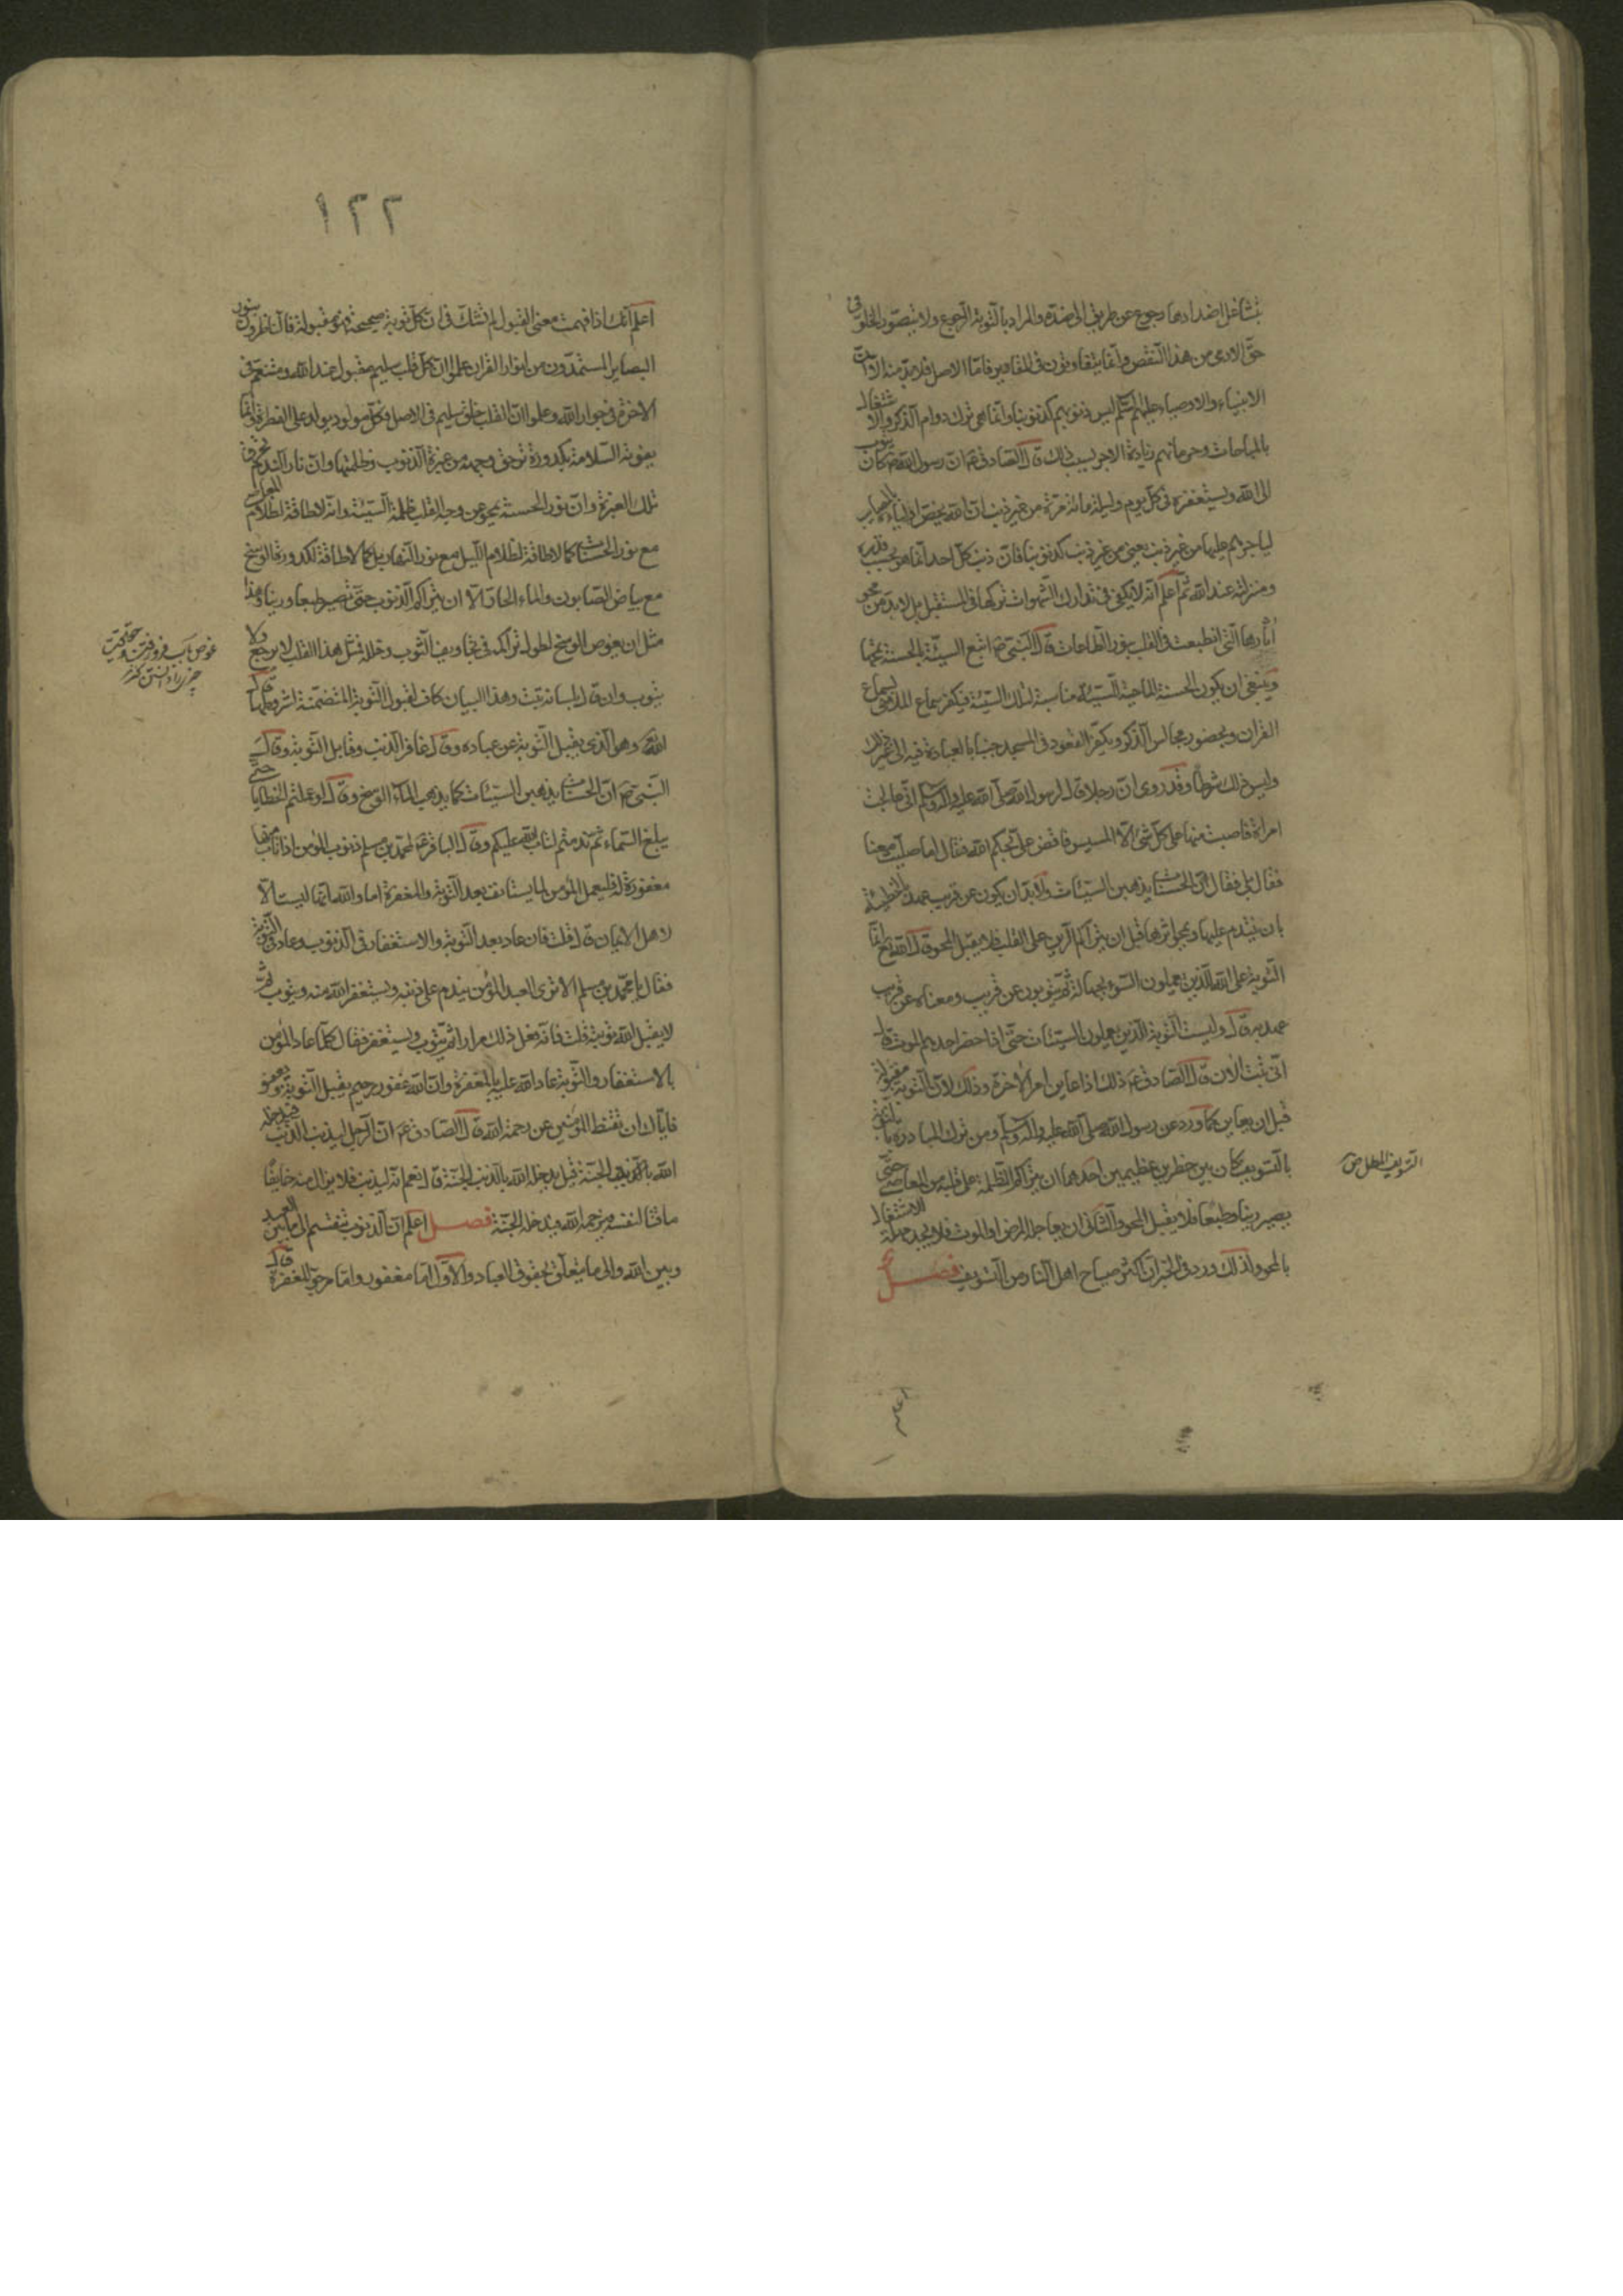 بتشاغل اضدادها رجوع عن طريق الى ضده والمراد بالتوبة الرجوع ولا يتصور الخلو فى
حق الادمى من هذا النقص وانما يتفاوتون فى المقادير فاما الاصل فلا بد منه الا ان
الانبياء والاوصياء عليهم السلم ليس ذنوبهم كذنوبنا وانما هى ترك دوام الذكر والاشتغال
بالمباحات وحرمانهم زيادة الاجر بسبب ذلك قال الصادق ع ان رسول الله ص كان يتوب
الى الله ويستغفره فى كل يوم وليلة مائة مرة من غير ذنب ان الله يخص اولياءه بالمصايب
لياجرهم عليها من غير ذنب يعنى من غير ذنب كذنوبنا فان ذنب كل احد انما هو بحسب قدره
ومنزلته عند الله ثم اعلم انه لا يكفى فى تدارك الشهوات تركها فى المستقبل بل لا بد من محو
اثارها التى انطبعت فى القلب بنور الطاعات قال النبى ص اتبع السيئة بالحسنة تمحها
وينبغى ان يكون الحسنة الماحية للسيئة مناسبة لتلك السيئة فيكفر سماع الملاهى بسماع
القران وبحضور مجالس الذكر ويكفر القعود فى المسجد جنبا بالعبادة فيه الى غير ذلك
وليس ذلك شرطا وقد روى ان رجلا قال لرسول الله صلى الله عليه واله وسلم انى عالجت
امراة فاصبت منها على كل شئ الا المسيس فاقض على بحكم الله فقال اما صليت معنا
فقال بلى فقال ان الحسنات يذهبن السيئات ولا بد ان يكون عن قرب عهد بالخطيئة
بان يتندم عليها ويمحو اثرها قبل ان يتراكم الرين على القلب فلا يقبل المحو قال الله تع انما
التوبة على الله للذين يعملون السوء بجهالة ثم يتوبون عن قريب ومعناه عن قرب
عهد به قال وليست التوبة للذين يعملون السيئات حتى اذا حضر احدهم الموت قال
انى تبت الان قال الصادق ع ذلك اذا عاين امر الاخرة وذلك لان التوبة مقبولة
قبل ان يعاين كما ورد عن رسول الله صلى الله عليه واله وسلم ومن ترك المبادرة بالتوبة
بالتسويف كان بين خطرين عظيمين احدهما ان يتراكم الظلمة على قلبه من المعاصى حتى
يصير رينا وطبعا فلا يقبل المحو والثانى ان يعاجله المرض او الموت فلا يجد مهلة الاشتغال
بالمحو ولذلك ورد فى الخبر ان اكثر صياح اهل النار من التسويف فصل
التسويف المطل ص
اعلم
١٢٢
اعلم انك اذا فهمت معنى القبول لم تشك فى ان كل توبة صحيحة فهى مقبولة فالناظرون بنور
البصاير المستمدون من انوار القران علموا ان كل قلب سليم مقبول عند الله ومتنعم فى
الاخرة فى جوار الله وعلموا ان القلب خلق سليم فى الاصل فكل مولود يولد على الفطرة وانما
يفوته السلامة بكدورة ترهق وجهه من غبرة الذنوب وظلمتها وان نار الندم تحرق
تلك الغبرة وان نور الحسنة يمحو عن وجه القلب ظلمة السيئة وانه لا طاقة لظلام المعاصى
مع نور الحسنات كما لا طاقة لظلام الليل مع نور النهار بل كما لا طاقة لكدورة الوسخ
مع بياض الصابون والماء الحار الا ان يتراكم الذنوب حتى تصير طبعا ورينا وهذا
مثل ان يغوص الوسخ لطول تراكمه فى تجاويف الثوب وخلله فمثل هذا القلب لا يرجع ولا
يتوب وان قال بلسانه تبت وهذا البيان كاف لقبول التوبة المتضمنة لشروطها قال
الله تع وهو الذى يقبل التوبة عن عباده وقال غافر الذنب وقابل التوبة وقال
النبى ص ان الحسنات يذهبن السيئات كما يذهب الماء الوسخ وقال لو عملتم الخطايا حتى
يبلغ السماء ثم ندمتم لتاب الله عليكم وقال الباقر ع لمحمد بن مسلم ذنوب المؤمن اذا تاب منها
مغفورة له فليعمل المؤمن لما يستانف بعد التوبة والمغفرة اما والله انها ليست الا
لاهل الايمان قال قلت فان عاد بعد التوبة والاستغفار فى الذنوب وعاد فى التوبة
فقال يا محمد بن مسلم الا ترى العبد المؤمن يندم على ذنبه ويستغفر الله منه ويتوب ثم
لا يقبل الله توبته قلت فانه فعل ذلك مرارا ثم يتوب ويستغفر فقال كلما عاد المؤمن
بالاستغفار والتوبة عاد الله عليه بالمغفرة وان الله غفور رحيم يقبل التوبة ويعفو
فاياك ان تقنط المؤمنين عن رحمة الله قال الصادق ع ان الرجل ليذنب الذنب فيدخله
الله به الجنة قيل يدخله الله بالذنب الجنة قال نعم انه ليذنب فلا يزال منه خايفا
ماقتا لنفسه فيرحمه الله فيدخله الجنة فصل اعلم ان الذنوب تنقسم الى ما بين العبد
وبين الله والى ما يتعلق بحقوق العباد والاول اما مغفور واما مرجو المغفرة قال
غوص باب فرو رفتن